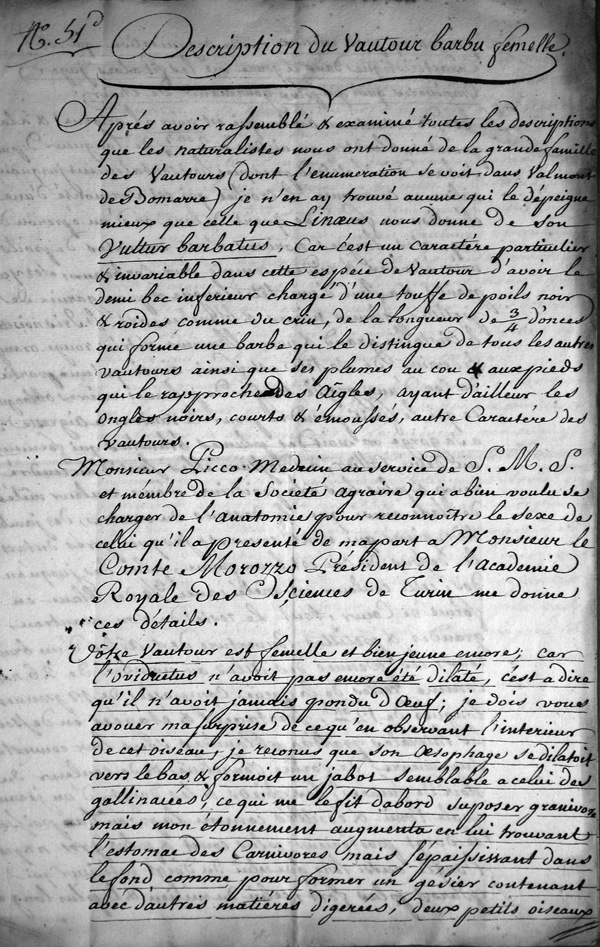 N.º 51.d
Description du Vautour barbu femelle.
Aprés avoir rassemblé & examiné toutes les descriptions
que les naturalistes nous ont donné de la grande famille
des Vautours (dont l'enumeration se voit dans Valmont
de Bomarre) je n'en ay trouvé aucune qui le dépeigne
mieux que celle que Linœus nous donne de son
Vultur barbatus, Car c'est un caractére particulier
& invariable dans cette espéce de Vautour d'avoir le
demi bec inferieur chargé d'une touffe de poils noir
& roides comme du crin, de la longueur de 3/4 d'onces
qui forme une barbe qui le distingue de tous les autres
vautours ainsi que ses plumes au cou & aux pieds
qui le rapproche des Aigles, ayant d'ailleur les
ongles noirs, courts & émoussés, autre Caractére des
vautours.
Monsieur Picco Medecin au service de S. M. S.
et mémbre de la Societé agraire qui a bien voulu se
charger de l'anatomie pour reconnoître le sexe de
celui qu'il a presenté de ma part a Monsieur le
Comte Morozzo Président de l'Academie
Royale des Sciences de Turin me donne
ces détails.
Vôtre Vautour est femelle et bien jeune encore; car
l'oviductus n'avoit pas encore été dilaté, c'est a dire
qu'il n'avoit jamais pondu d'Œuf; je dois vous
avouer ma surprise de ce qu'en observant l'interieur
de cet oiseau, je reconus que son Œsophage se dilatoit
vers le bas & formoit un jabot semblable a celui des
gallinacées, ce qui me le fit d'abord suposer granivore
mais mon étonnement augmenta en lui trouvant
l'estomac des Carnivores mais s'épaississant dans
le fond comme pour former un gésier contenant
avec d'autres matiéres digerées, deux petits oiseaux